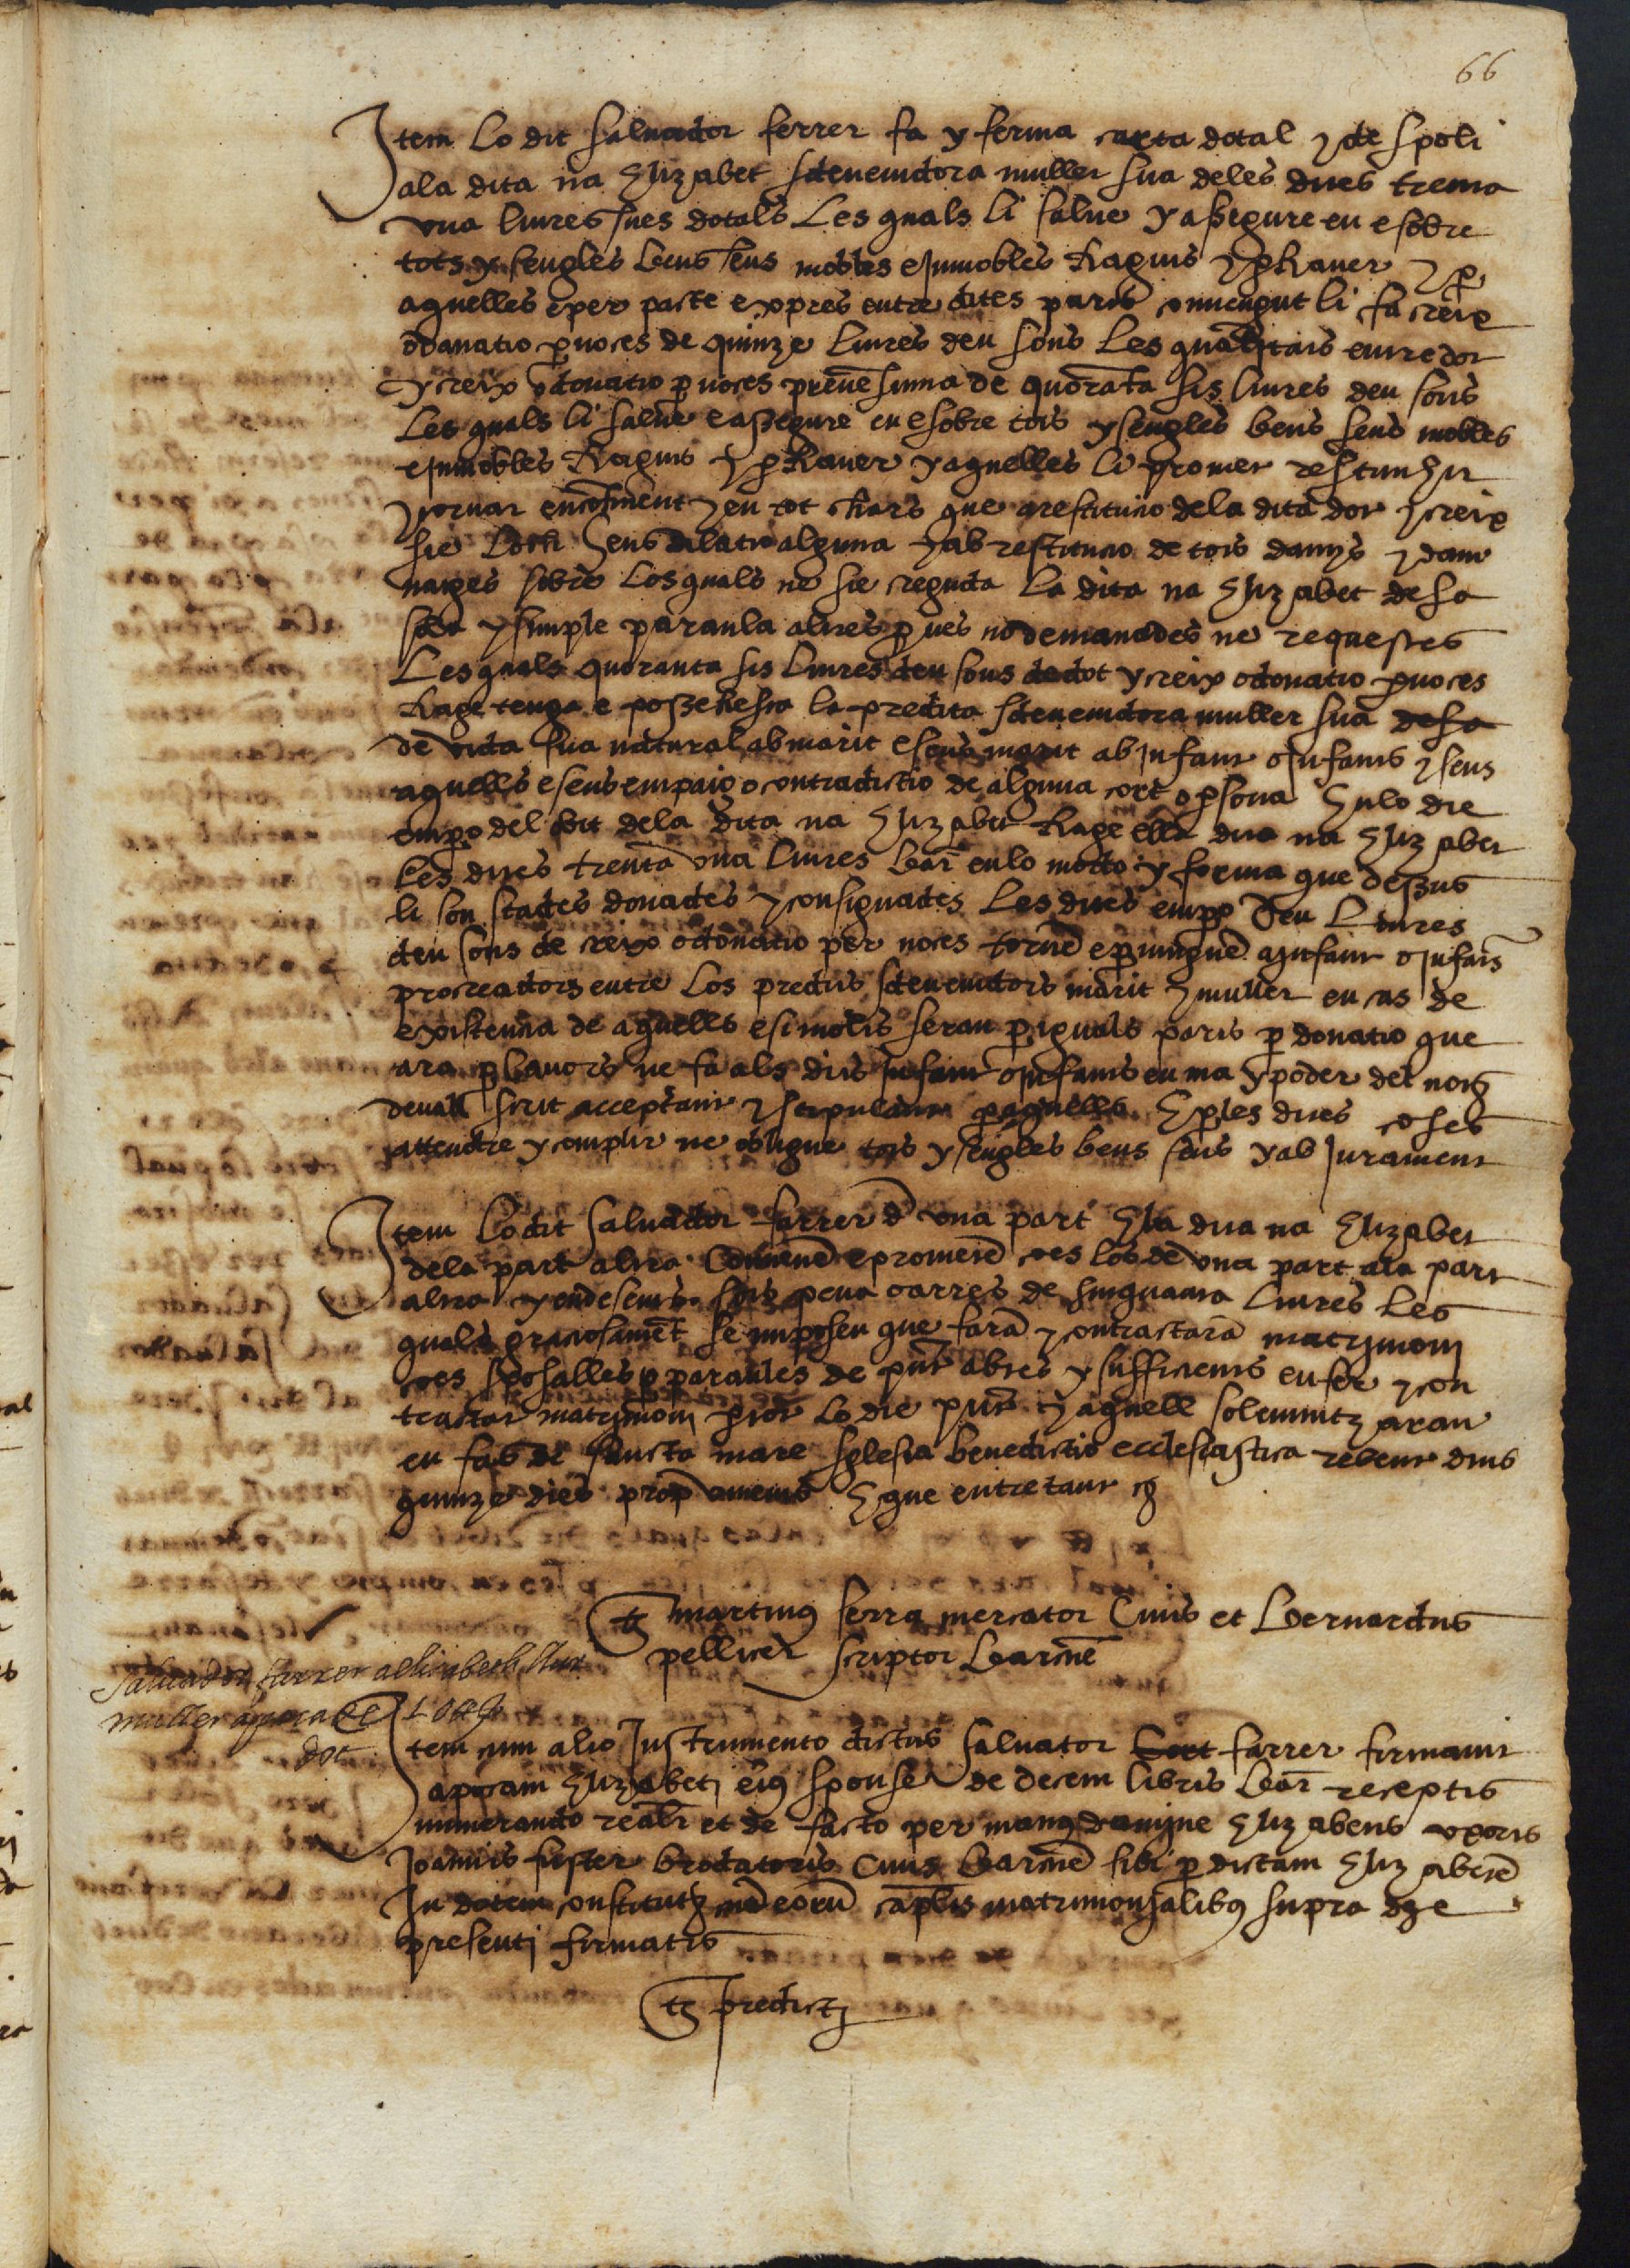 66
Item lo dit Saluador ferrer fa y ferma carta dotal y de spoli
ala dita na Elizabet sdeuenidora muller sua deles dites trenta
vna liures sues dotals Les quals li salue y assegure en e sobre
tots y sengles bens seus mobles e Inmobles haguts y p hauer y p
aquelles e per pacte expres entre dites parts conuengut li fa creix
o donatio p noces de quinze liures deu sous Les quals entre dot
y creix o donatio p noces prenē summa de quorāta sis liures deu sous
Les quals li salue e assegure en e sobre tots y sengles bens seus mobles
e Inmobles haguts y p hauer y aquelles li promet restituhir
y tornar encōtinent y en tot cars que a restitucio dela dita dot y creix
sie loch Sens dilatio alguna y ab restitucio de tots danys y dam
natges sobre los quals ne sie creguda la dita na Elizabet de sa
sola y simple paraula altres pues no demanades ne requestes
Les quals quoranta sis liures deu sous de dot y creix o donatio p noces
hage tenga e possehesca la predita sdeuenidora muller sua de sa
de vida sua natural ab marit e sens marit ab Infant o Infants y sens
aquells e sens empaig o contradictio de alguna cort o psona E n lo die
empo del obit dela dita na Elizabet hage ella dita na Elizabet
les dites trenta vna liures bar en lo modo y forma que dessus
li son stades donades y consignades Les dites empo deu liures
deu sous de creix o donatio per noces tornē e p uinguē a Infant o Infāts
procreadors entre los predits sdeuenidors marit y muller en cas de
existencia de aquells e si molts seran p iguals parts p donatio que
ara p lauors ne fa als dits Infant o Infants en ma y poder del not
deuall scrit acceptant y stipulant p aquells. E p les dites coses
attendre y complir ne obligue tots y sengles bens seus y ab Jurament
Item lo dit Saluador farrer d vna part E la dita na Elizabet
dela part altra Conuenē e prometē ço es los de vna part ala part
altra y endeseuis sots pena o arres de sinquanta liures les
quals graciosamēt se imposen que farā y contractarā matrimonj
ço es sposalles p paraules de pnt abtes y sufficients en fer y con
tractar matrimonj p tot lo die pnt y aquell solemnitzaran
en fas de sancta mare Sglesia benedictio ecclesiastica rebent dins
quinze dies prop vinents E que entretant cζ
tζ martinꝰ serra mercator Ciuis et bernardus
pellicer scriptor barcnē
Saluador farrer a elizabeth
muller apoca de L Ll
dot
Item cum alio Instrumento dictus Saluator Cort farrer firmauit
apocam Elizabetj eiꝰ sponse de decem libris bar receptis
numerando realr et de facto per manꝰ domine Elizabetis vxoris
Joannis fuster brodatoris Ciuis barcnē sibi p dictam Elizabetē
In dotem constitut in eorū caplis matrimonialibꝰ supra die
presenti firmatis
tζ predictj